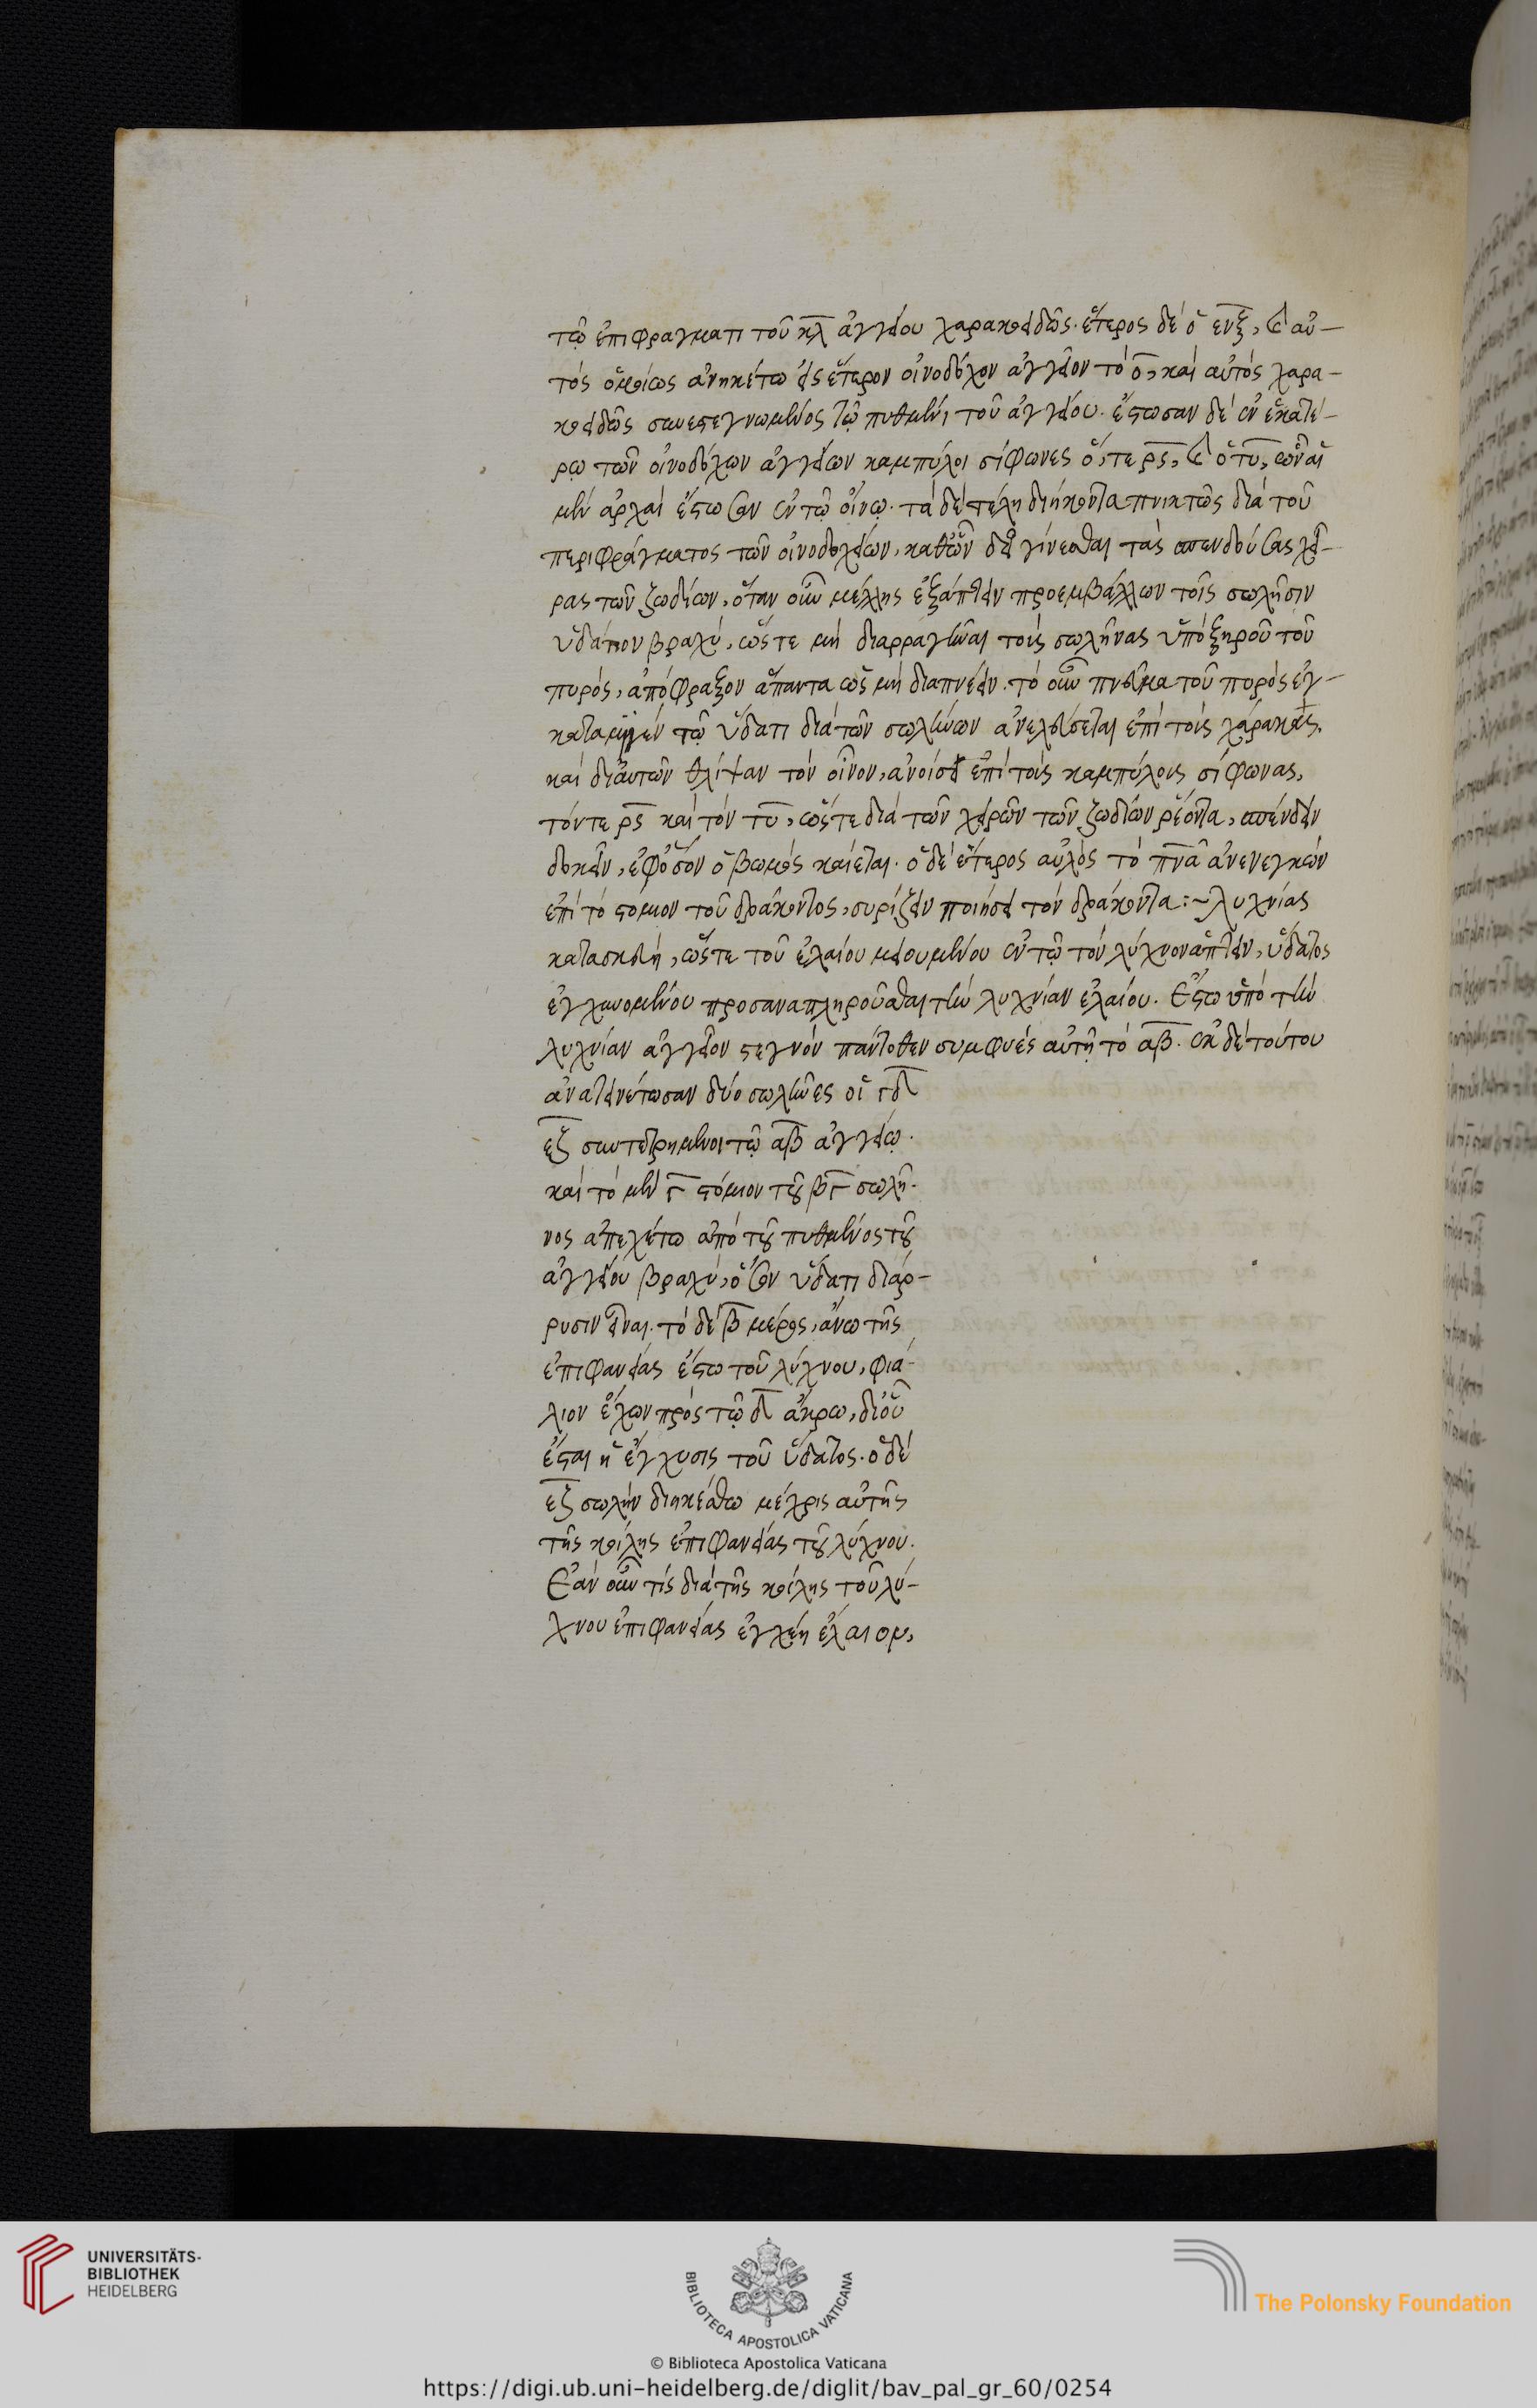 τῷ ἐπιφράγματι τοῦ κλ ἀγγείου χαρακοειδῶς. ἕτερος δὲ ὁ ενξ, καὶ αὐ-
τὸς ὁμοίως ἀνηκέτω εἰς ἕτερον οἰνοδόχον ἀγγεῖον τὸ ο, καὶ αὐτὸς χαρα-
κοειδῶς συνεστεγνωμένος τῷ πυθμένι τοῦ ἀγγείου. ἔστωσαν δὲ ἐν ἑκατέ-
ρῳ τῶν οἰνοδόχων ἀγγείων καμπύλοι σίφωνες ὅ, τε ρς, καὶ ὁ τυ, ὧν αἱ
μὲν ἀρχαὶ ἔστωσαν ἐν τῷ οἴνῳ. τὰ δὲ τέλη διήκοντα πνικτῶς διὰ τοῦ
περιφράγματος τῶν οἰνοδοχείων, καθ' ὧν δεῖ γίνεσθαι τὰς σπενδούσας χεῖ-
ρας τῶν ζωδίων, ὅταν οὖν μέλλης ἐξάπτειν προεμβάλλων τοῖς σωλῆσιν
ὑδάτιον βραχὺ, ὥστε μὴ διαρραγῆναι τοὺς σωλῆνας ὑπὸ ξηροῦ τοῦ
πυρός, ἀπόφραξον ἅπαντα ὡς μὴ διαπνέειν. τὸ οὖν πνεῦμα τοῦ πυρὸς ἐγ-
καταμιγὲν τῷ ὕδατι διὰ τῶν σωλήνων ἀνελεύσεται ἐπὶ τοὺς χάρακας,
καὶ δι' αὐτῶν θλίψαν τὸν οἶνον, ἀνοίσει ἐπὶ τοὺς καμπύλους σίφωνας,
τόν τε ρς καὶ τὸν τυ, ὥστε διὰ τῶν χειρῶν τῶν ζωδίων ῥέοντα, σπένδειν
δοκεῖν, ἐφ' ὅσον ὁ βωμὸς καίεται. ὁ δὲ ἕτερος αὐλὸς τὸ πνα ἀνενεγκὼν
ἐπὶ τὸ στόμιον τοῦ δράκοντος, συρίζειν ποιήσει τὸν δράκοντα :~ λυχνίας
κατασκευή, ὥστε τοῦ ἐλαίου μειουμένου ἐν τῷ τὸν λύχνον ἅπτειν, ὕδατος
ἐγχυνομένου προσαναπληροῦσθαι τὴν λυχνίαν ἐλαίου. Ἔστω ὑπὸ τὴν
λυχνίαν ἀγγεῖον στεγνὸν πάντοθεν συμφυὲς αὐτῇ τὸ αβ. ἐκ δὲ τούτου
ἀνατεινέτωσαν δύο σωλῆνες οἱ γδ
εζ συντετρημένοι τῷ αβ ἀγγείῳ.
καὶ τὸ μὲν γ στόμιον τοῦ βγ σωλῆ-
νος ἀπεχέτω ἀπὸ τοῦ πυθμένος τοῦ
ἀγγείου βραχὺ, ὅσον ὕδατι διάρ-
ρυσιν εἶναι. τὸ δὲ β μέρος, ἄνω τῆς
ἐπιφανείας ἔστω τοῦ λύχνου, φιά-
λιον ἔχων πρὸς τῷ δ ἄκρω, δι' οὗ
ἔσται ἡ ἔγχυσις τοῦ ὕδατος. ὁ δὲ
εζ σωλὴν διηκέσθω μέχρις αὐτῆς
τῆς κοίλης ἐπιφανείας τοῦ λύχνου.
Ἐὰν οὖν τίς διὰ τῆς κοίλης τοῦ λύ-
χνου ἐπιφανείας ἐγχέῃ ἔλαιον,
UNIVERSITÄTS-
BIBLIOTHEK
HEIDELBERG
BIBLIOTECA APOSTOLICA VATICANA
The Polonsky Foundation
© Biblioteca Apostolica Vaticana
https://digi.ub.uni-heidelberg.de/diglit/bav_pal_gr_60/0254